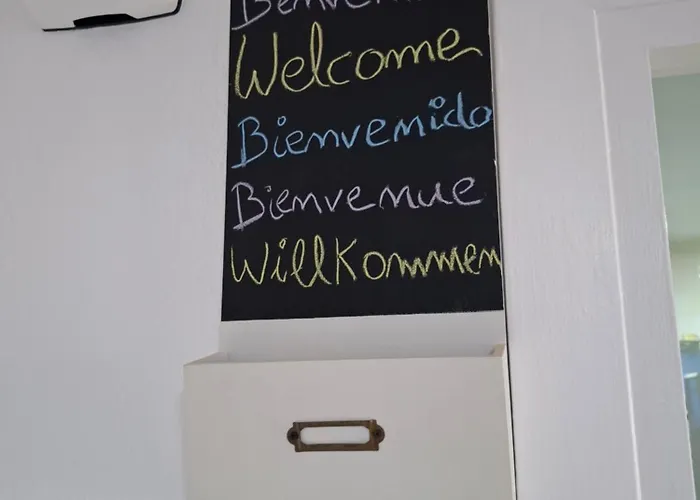 Welcome
Bienvenido
Bienvenue
Willkommen